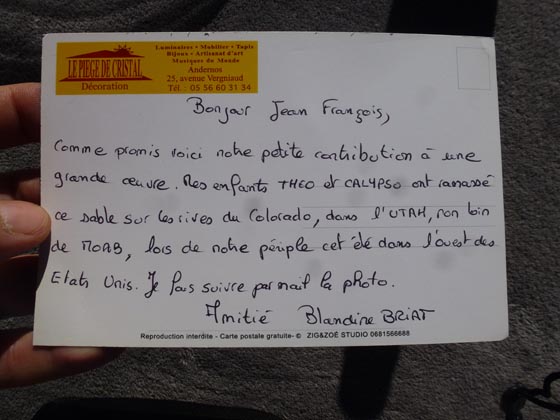 LE PIEGE DE CRISTAL
Décoration
Luminaires • Mobilier • Tapis
Bijoux • Artisanat d'art
Musiques du Monde
Andernos
25, avenue Vergniaud
Tél. : 05 56 60 31 34
Bonjour Jean François,
Comme promis voici notre petite contribution à une
grande œuvre. Mes enfants THEO et CALYPSO ont ramassé
ce sable sur les rives du Colorado, dans l'UTAH, non loin
de MOAB, lors de notre périple cet été dans l'ouest des
Etats Unis. Je fais suivre par mail la photo.
Amitié Blandine BRIAT
Reproduction interdite - Carte postale gratuite- © ZIG&ZOÉ STUDIO 0681566688